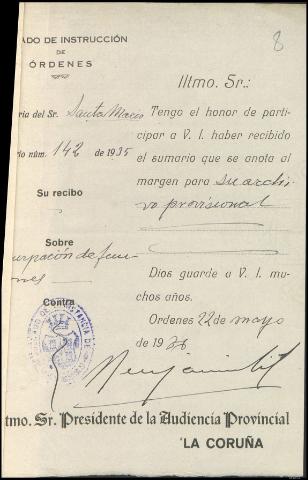 8
ADO DE INSTRUCCIÓN
DE
ÓRDENES
ría del Sr. Santa María
rio núm. 142 de 1935
Su recibo
Sobre
urpación de fun-
ones
Contra
Iltmo. Sr.:
Tengo el honor de parti-
cipar a V. I. haber recibido
el sumario que se anota al
margen para su archi-
vo provisional
Dios guarde a V. I. mu-
chos años.
Ordenes 22 de mayo
de 1936
tmo. Sr. Presidente de la Audiencia Provincial
LA CORUÑA